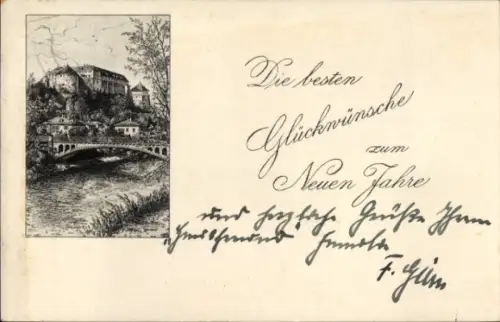 Die besten
Glückwünsche
zum
Neuen Jahre
und herzliche Grüße Ihrem
F.